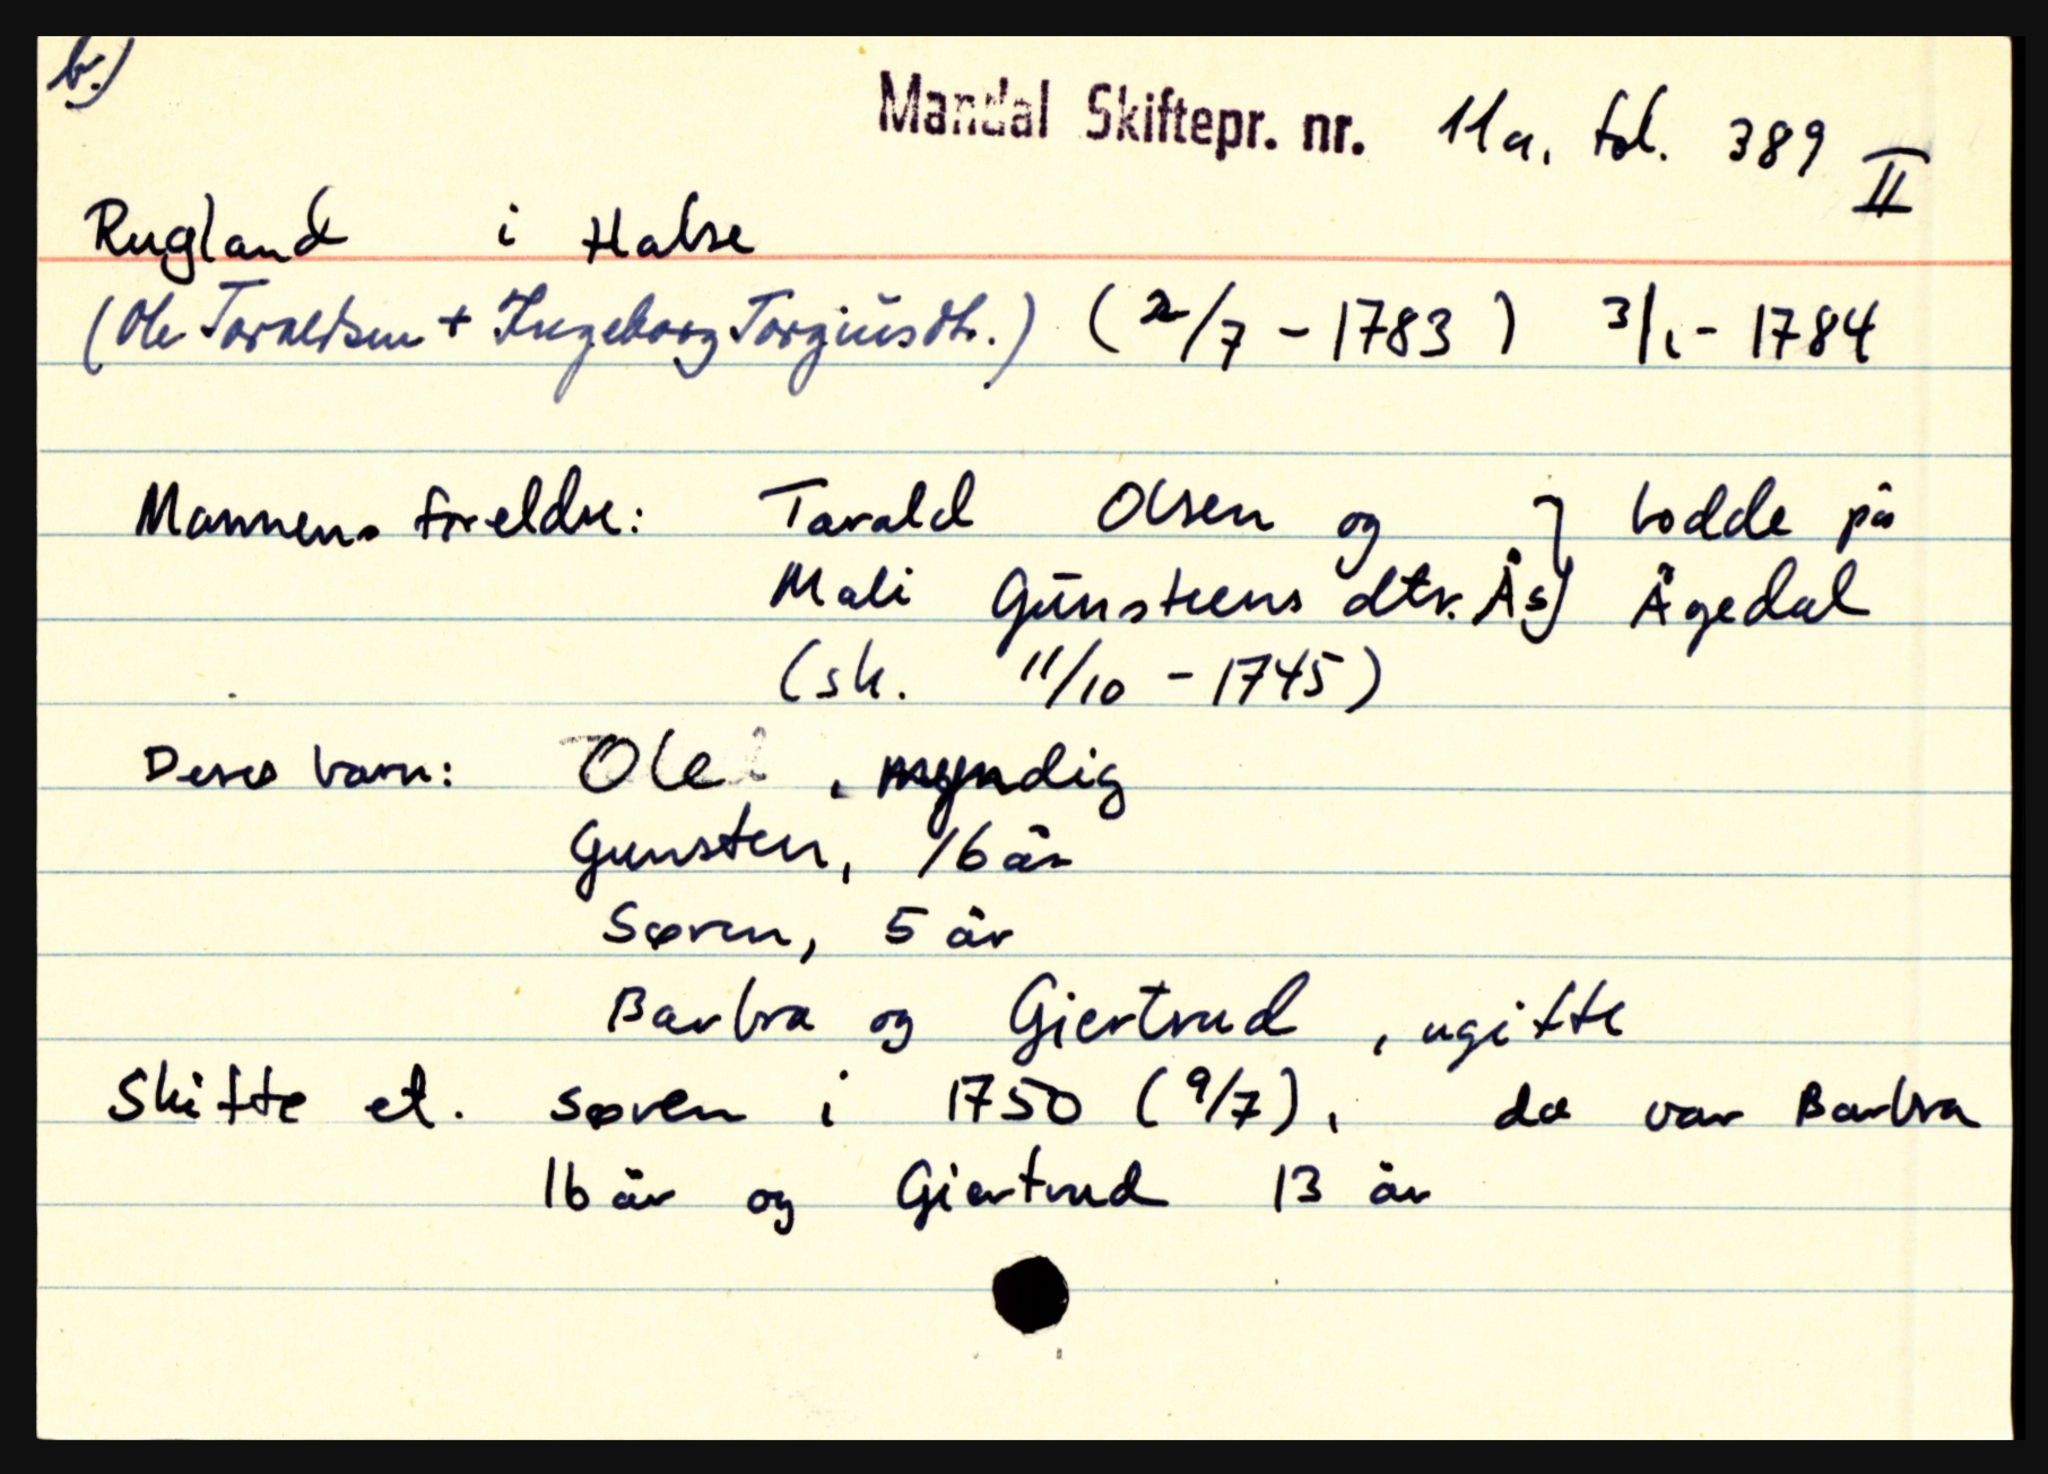 b.)
Mandal Skiftepr. nr. 11a, fol. 389 II
Rugland i Halse
(Ole Taraldsen + Ingeborg Torgiusdtr.) (2/7 - 1783) 3/1 - 1784
Mannens foreldre: Tarald Olsen og } bodde på
Mali Gūnsteens dtr. Ås } Ågedal
(sk. 11/10 - 1745)
Deres barn: Ole , myndig
Gunsten, 16 år
Søren, 5 år
Barbra og Giertrud , ugifte
Skifte et. Søren i 1750 (9/7), da var Barbra
16 år og Giertrud 13 år